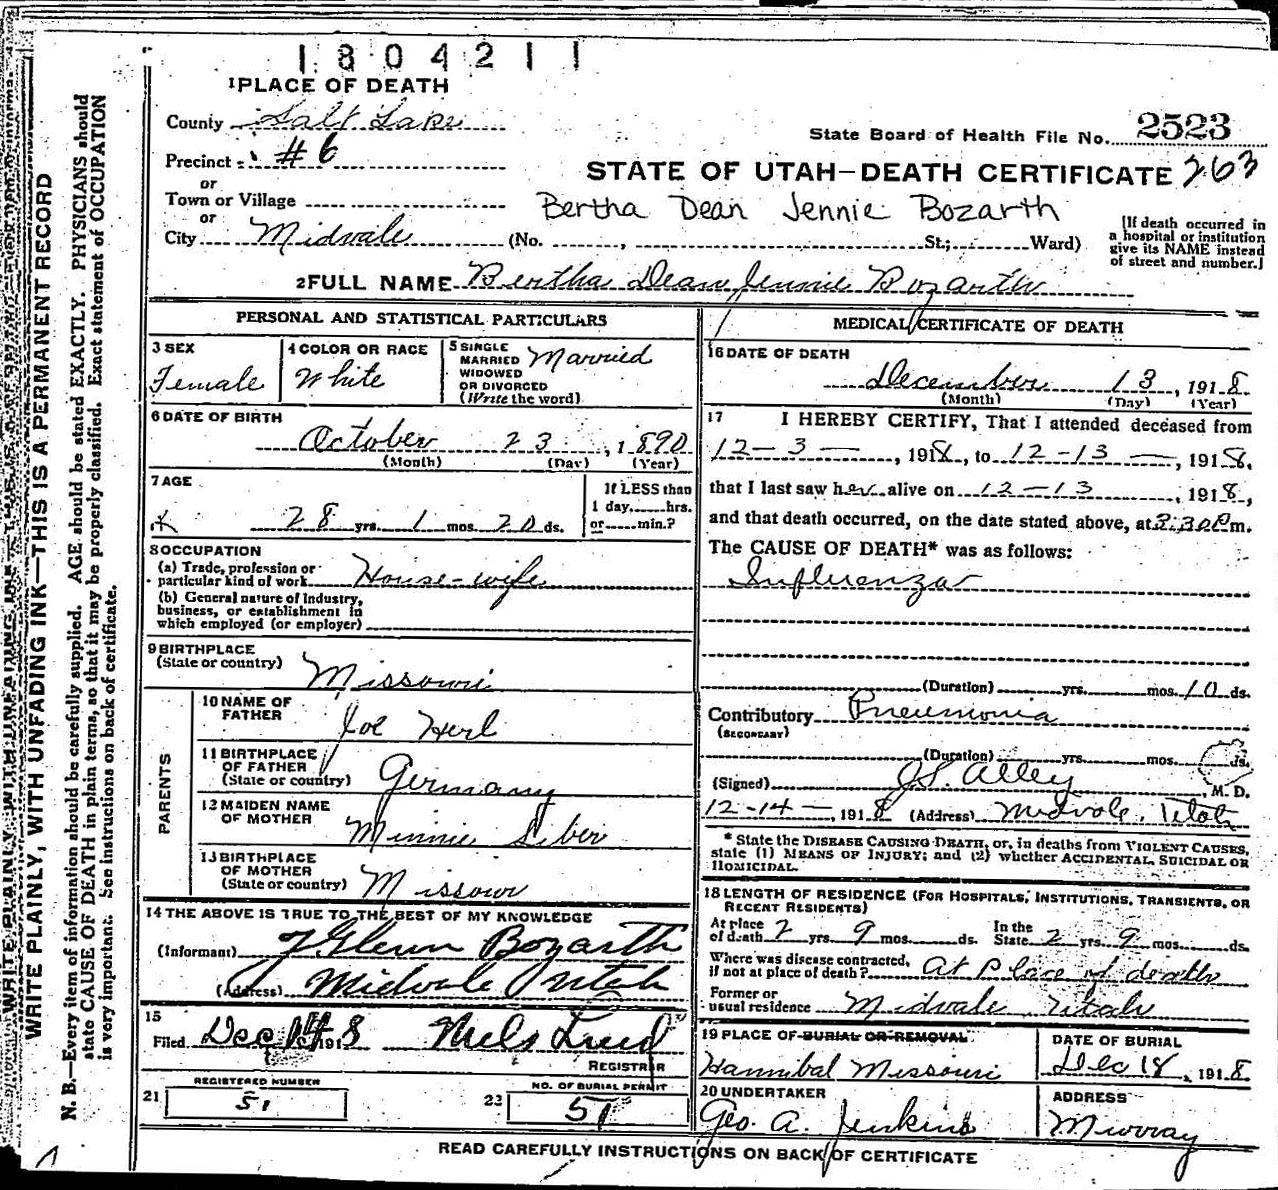 1804211
1 PLACE OF DEATH
County Salt Lake
State Board of Health File No. 2523
Precinct #6
STATE OF UTAH—DEATH CERTIFICATE 263
or
Town or Village
Bertha Dean Jennie Bozarth
or
City Midvale (No. , St.; Ward)
[If death occurred in a hospital or institution give its NAME instead of street and number.]
2 FULL NAME Bertha Dean Jennie Bozarth
PERSONAL AND STATISTICAL PARTICULARS
3 SEX
Female
4 COLOR OR RACE
White
5 SINGLE
MARRIED
WIDOWED
OR DIVORCED
(Write the word)
Married
6 DATE OF BIRTH
October 23, 1890
(Month) (Day) (Year)
7 AGE
28 yrs. 1 mos. 20 ds.
If LESS than
1 day, hrs.
or min.?
8 OCCUPATION
(a) Trade, profession or
particular kind of work House-wife
(b) General nature of Industry,
business, or establishment in
which employed (or employer)
9 BIRTHPLACE
(State or country) Missouri
PARENTS
10 NAME OF
FATHER Joe Herl
11 BIRTHPLACE
OF FATHER
(State or country) Germany
12 MAIDEN NAME
OF MOTHER Minnie Siber
13 BIRTHPLACE
OF MOTHER
(State or country) Missouri
14 THE ABOVE IS TRUE TO THE BEST OF MY KNOWLEDGE
(Informant) J Glenn Bozarth
(Address) Midvale Utah
15
Filed Dec 14 1918 Niels Lind
REGISTRAR
REGISTERED NUMBER
21 51
NO. OF BURIAL PERMIT
22 51
MEDICAL CERTIFICATE OF DEATH
16 DATE OF DEATH
December 13, 1918
(Month) (Day) (Year)
17 I HEREBY CERTIFY, That I attended deceased from
12-3-, 1918, to 12-13-, 1918,
that I last saw her alive on 12-13, 1918,
and that death occurred, on the date stated above, at 3:30 P m.
The CAUSE OF DEATH* was as follows:
Influenza
(Duration) yrs. mos. 10 ds.
Contributory Pneumonia
(SECONDARY)
(Duration) yrs. mos. ds.
(Signed) J.S. Alley, M. D.
12-14-, 1918 (Address) Midvale, Utah
* State the DISEASE CAUSING DEATH, or, in deaths from VIOLENT CAUSES,
state (1) MEANS OF INJURY; and (2) whether ACCIDENTAL, SUICIDAL OR
HOMICIDAL.
18 LENGTH OF RESIDENCE (FOR HOSPITALS, INSTITUTIONS, TRANSIENTS, OR
RECENT RESIDENTS)
At place
of death 2 yrs. 9 mos. ds. In the State 2 yrs. 9 mos. ds.
Where was disease contracted,
if not at place of death? At place of death
Former or
usual residence Midvale Utah
19 PLACE OF BURIAL OR REMOVAL
Hannibal Missouri
DATE OF BURIAL
Dec 18, 1918
20 UNDERTAKER
Geo. A. Jenkins
ADDRESS
Murray
READ CAREFULLY INSTRUCTIONS ON BACK OF CERTIFICATE
WRITE PLAINLY, WITH UNFADING INK—THIS IS A PERMANENT RECORD
N. B.—Every item of information should be carefully supplied. AGE should be stated EXACTLY. PHYSICIANS should
state CAUSE OF DEATH in plain terms, so that it may be properly classified. Exact statement of OCCUPATION
is very important. See instructions on back of certificate.